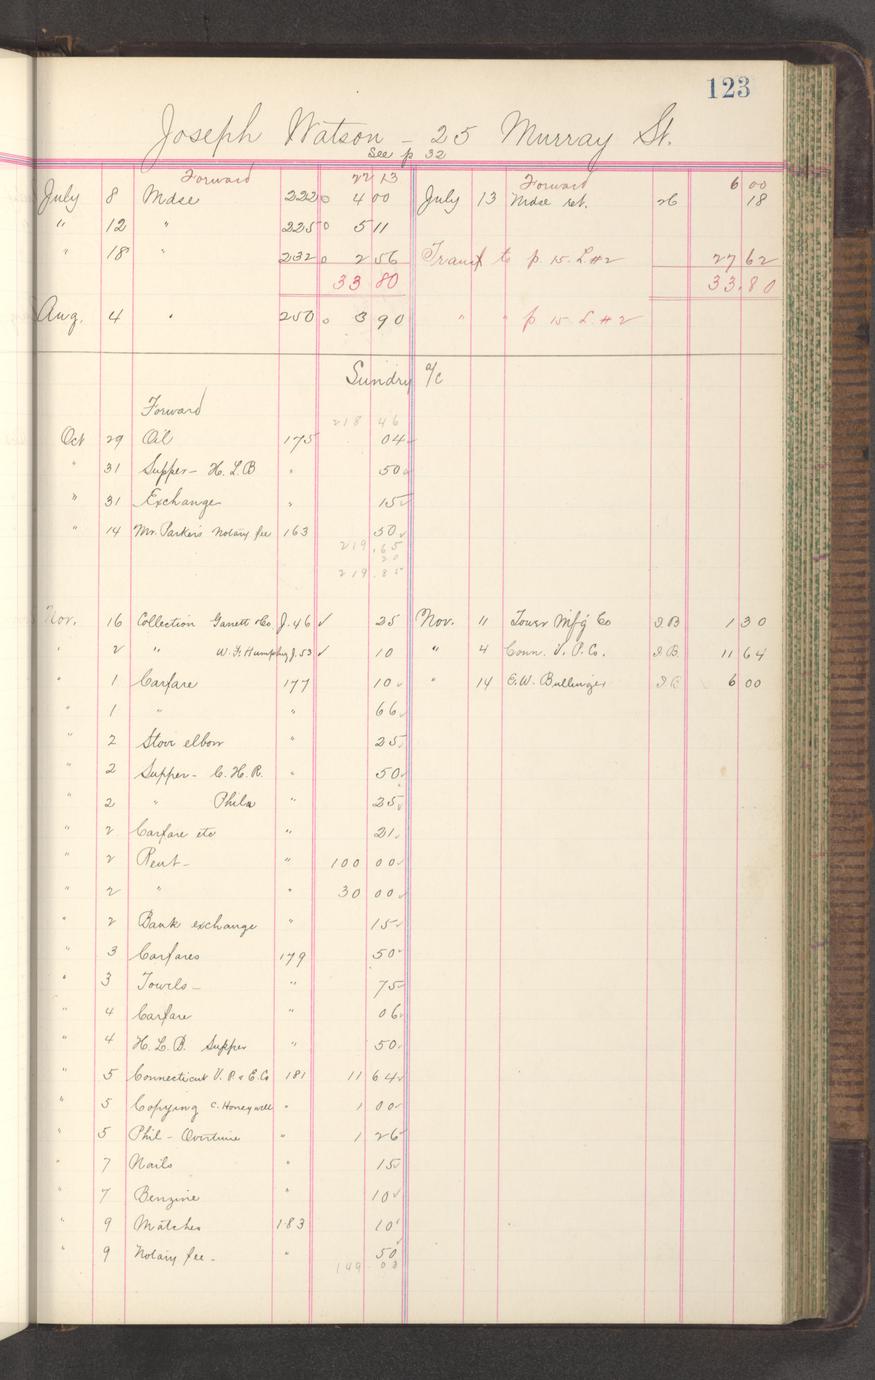 123
Joseph Watson - 25 Murray St.
See p 32
Forward 22 13 Forward 6 00
July 8 Mdse 222 4 00 July 13 Mdse ret. 26 18
" 12 " 225 5 11
" 18 " 232 2 56 Transf to p. 15. L.#2 27 62
33 80 33.80
Aug. 4 " 250 3 90 " " p 15 L.#2
Sundry a/c
Forward 218 46
Oct 29 Oil 175 04
" 31 Supper - H.L.B " 50
" 31 Exchange " 15
" 14 Mr. Parker's Notary fee 163 50
219.65
20
219.85
Nov. 16 Collection Garrett & Co. J. 46 ✓ 25 Nov. 11 Tower Mf'g Co I.B 1 30
" 2 " W.F. Humphrey J. 53 ✓ 10 " 4 Conn. V.P. Co. I.B. 11 64
" 1 Carfare 177 10 " 14 E.W. Bullinger I.B. 6 00
" 1 " " 66
" 2 Stove elbow " 25
" 2 Supper - C.H.R. " 50
" 2 " Phila " 25
" 2 Carfare etc " 21
" 2 Rent - " 100 00
" 2 " " 30 00
" 2 Bank exchange " 15
" 3 Carfares 179 50
" 3 Towels - " 75
" 4 Carfare " 06
" 4 H.L.B. Supper " 50
" 5 Connecticut V.P. & E. Co 181 11 64
" 5 Copying C. Honeywell " 1 00
" 5 Phil - Overtime " 1 26
" 7 Nails " 15
" 7 Benzine " 10
" 9 Matches 183 10
" 9 Notary fee - " 50